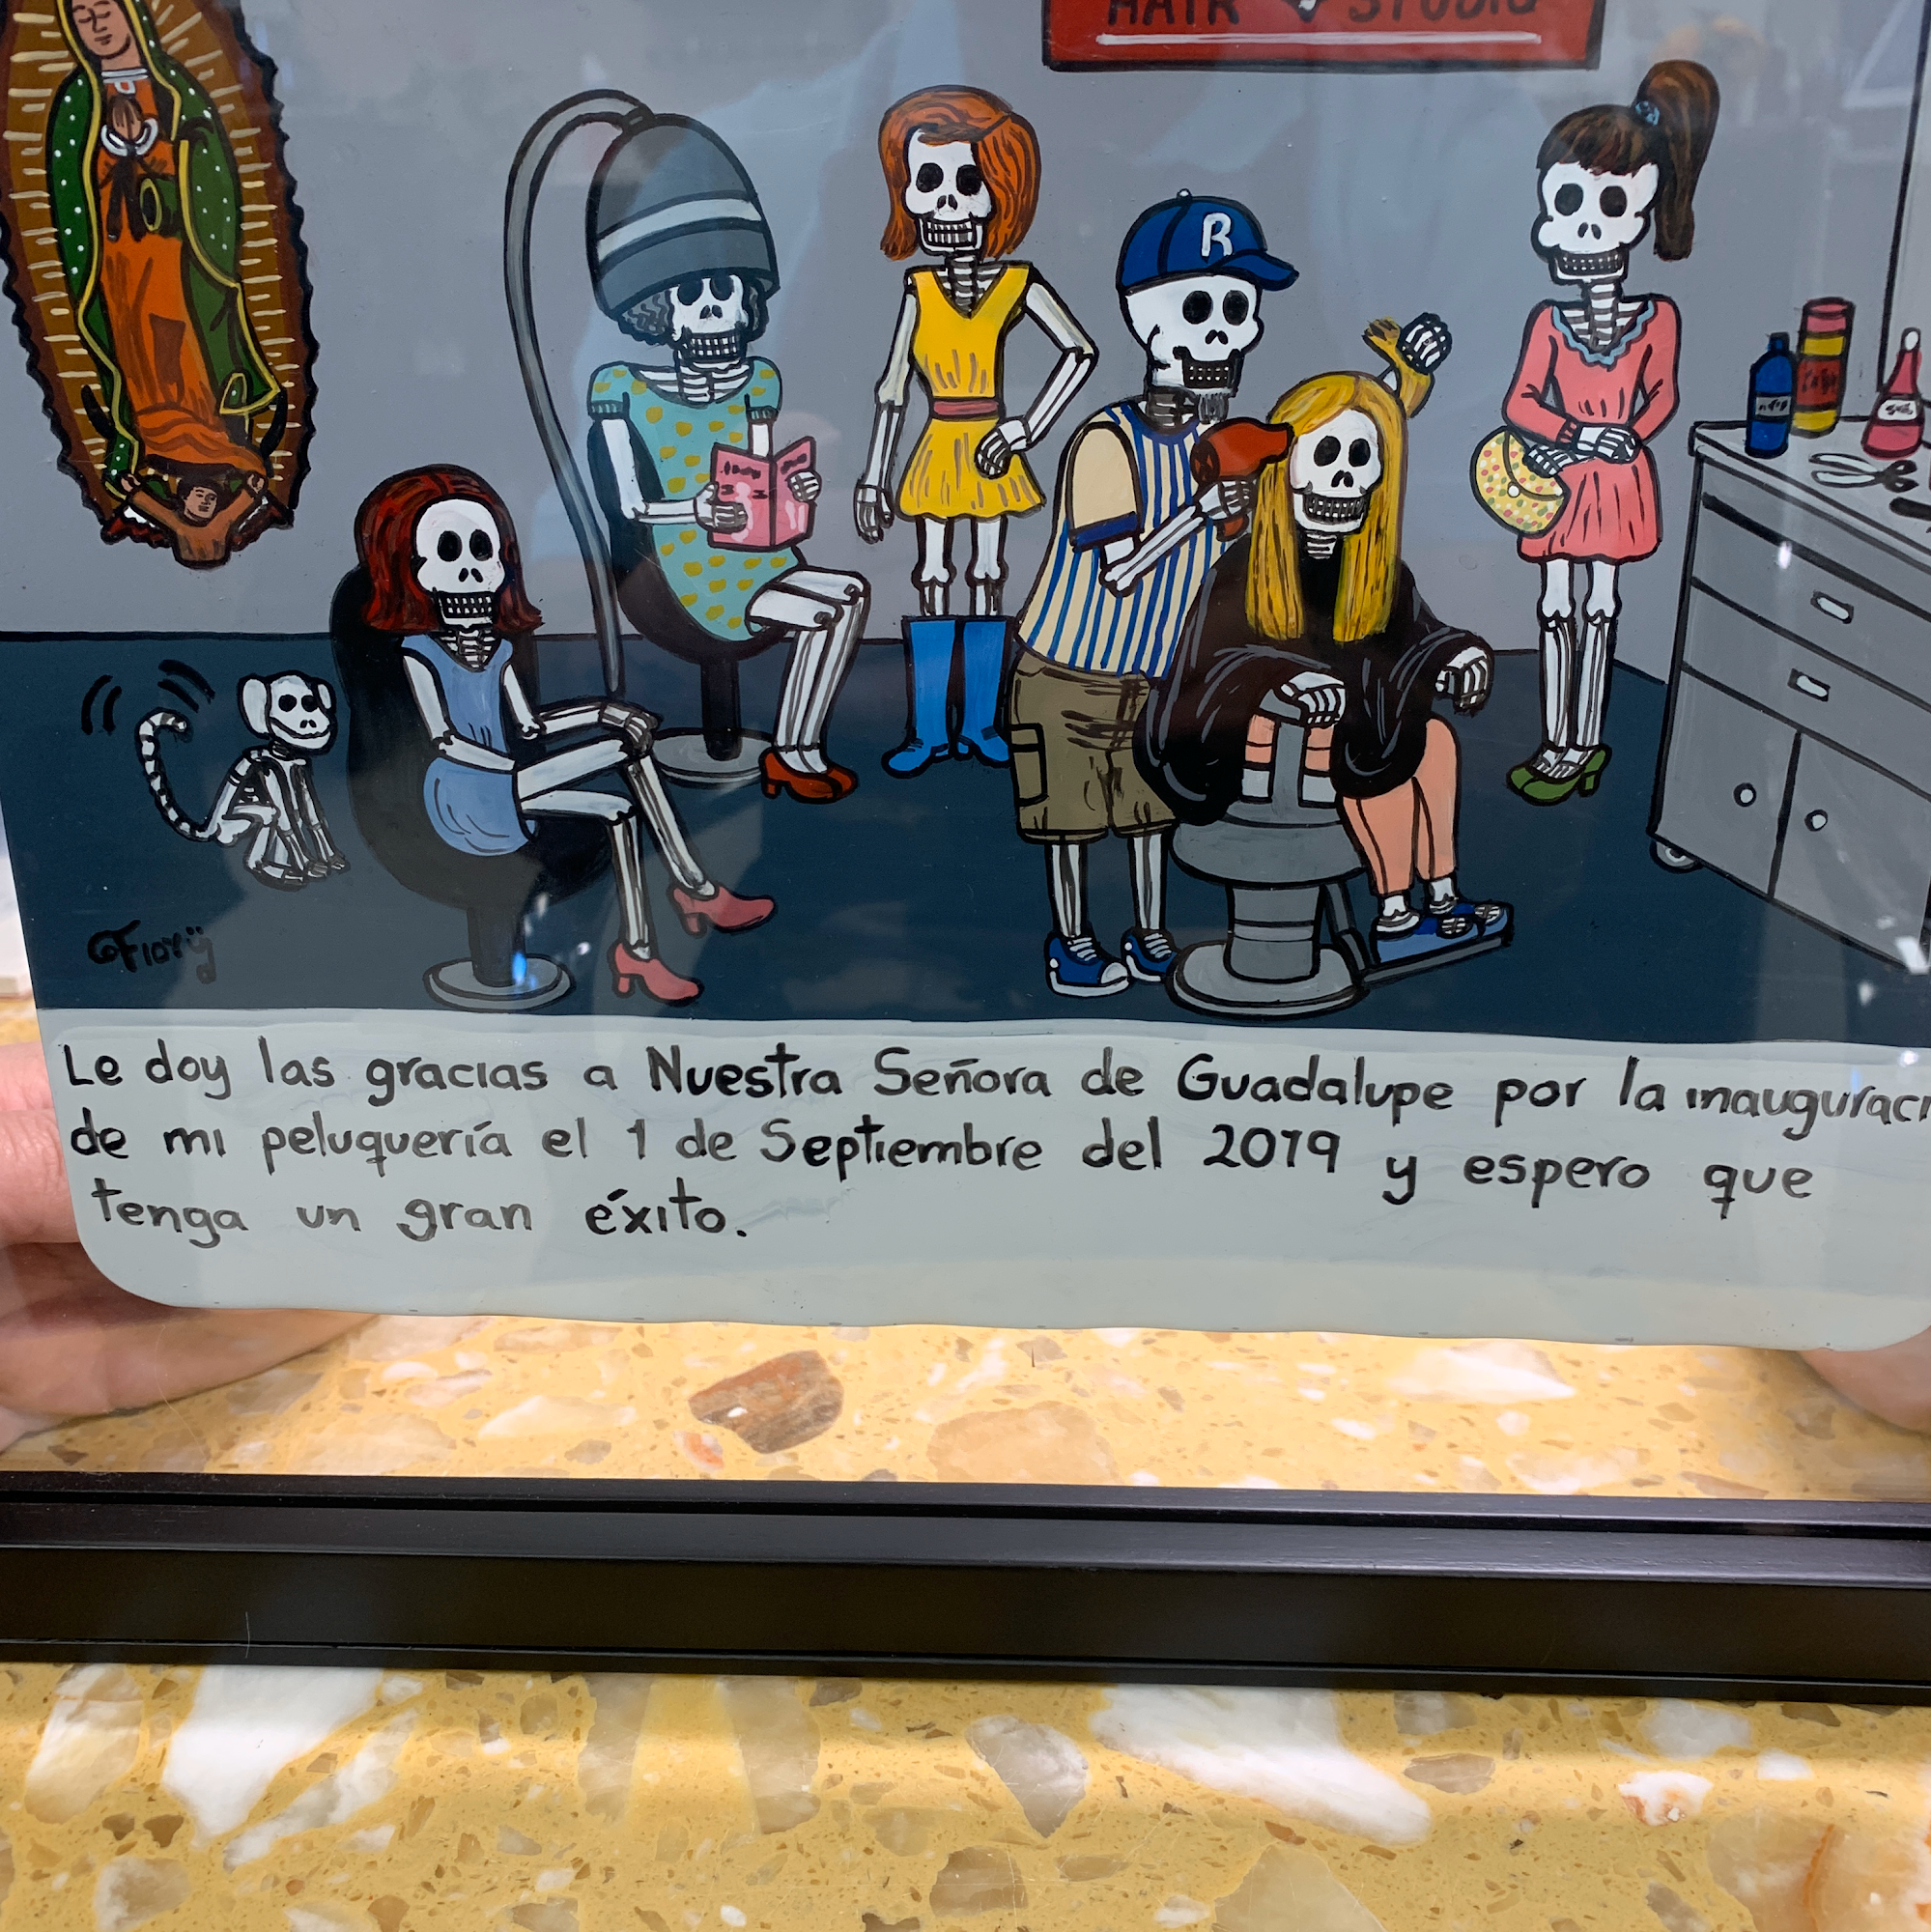 HAIR STUDIO
R
Fiorij
Le doy las gracias a Nuestra Señora de Guadalupe por la inauguraci
de mi peluquería el 1 de Septiembre del 2019 y espero que
tenga un gran éxito.